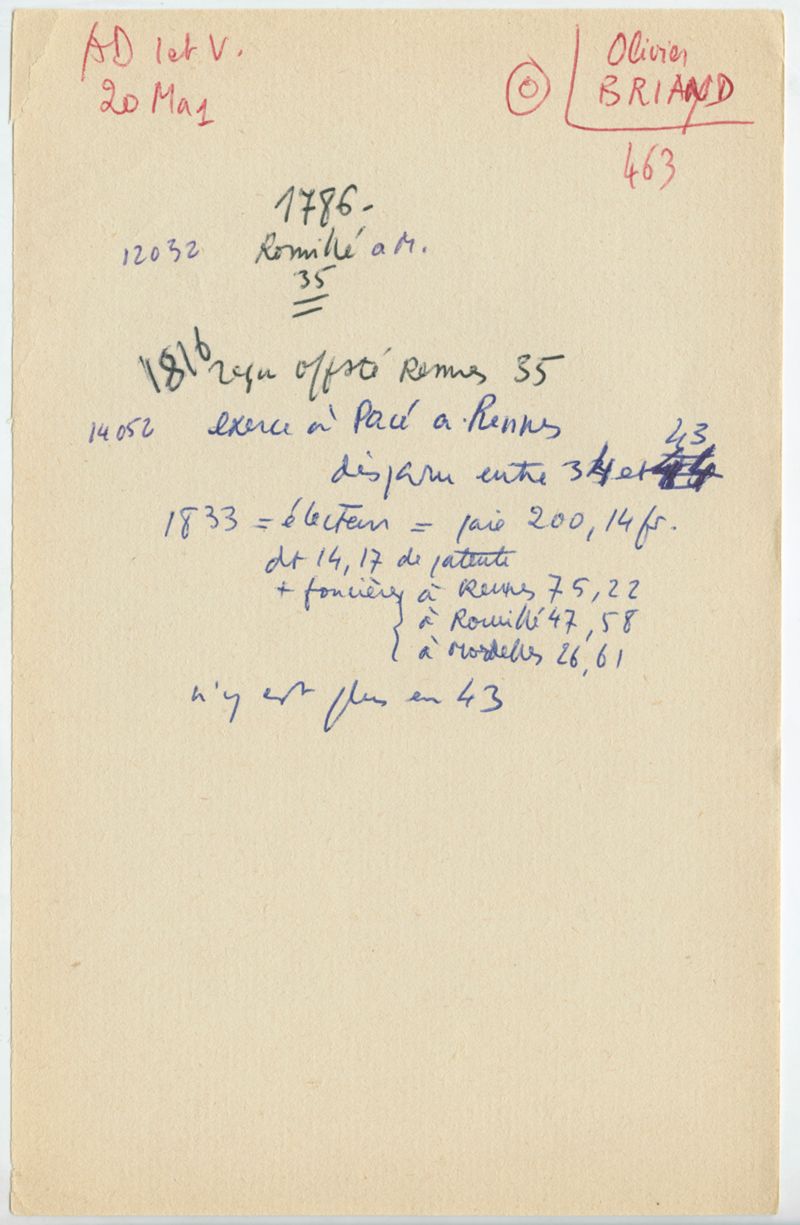 AD I et V.
20 Ma1
Olivier
BRIAND
463
1786-
12032 Romillé a M.
35
1816 reçu off sté Rennes 35
14052 exerce à Pacé a. Rennes
43
disparu entre 34 et
1833 = électeur = paie 200,14 fr.
dt 14,17 de patente
+ foncières à Rennes 75,22
à Romillé 47,58
à Mordelles 26,61
n'y est plus en 43